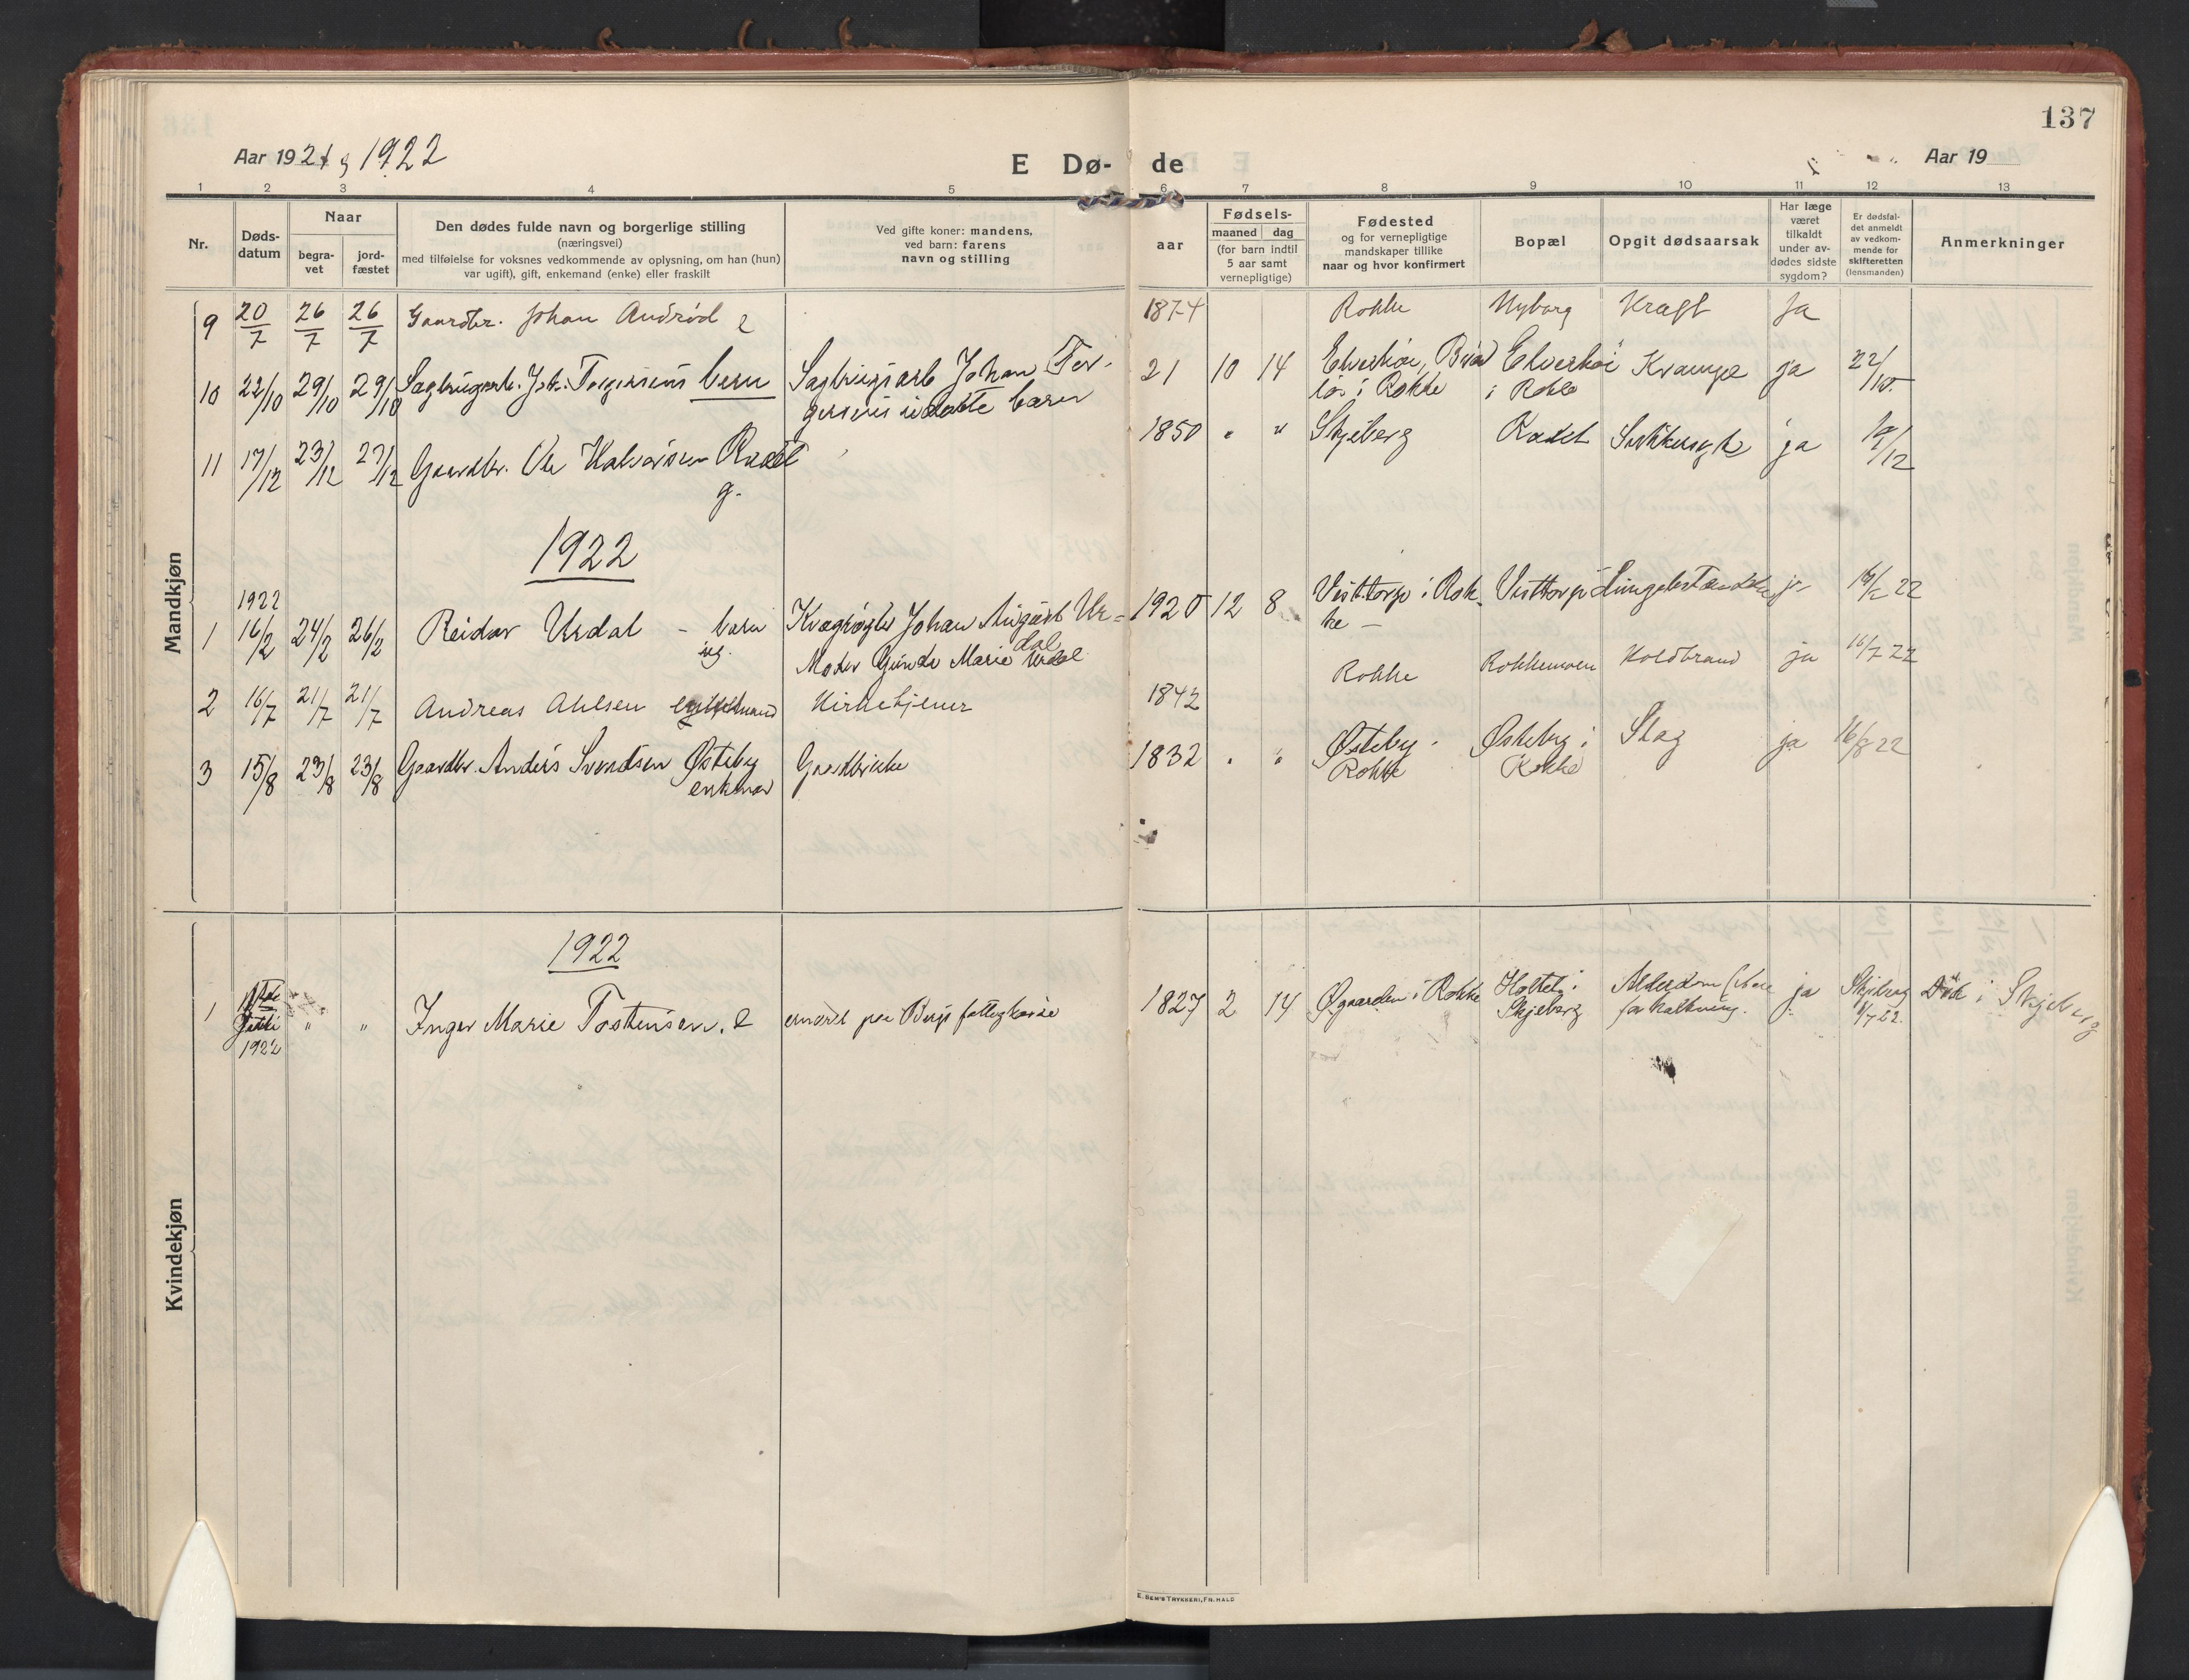 137
Aar 1921 og 1922
E Dø-
de
Aar 19
1 2 3 4 5 6 7 8 9 10 11 12 13
Nr.
Døds-
datum
Naar
begra-
vet
jord-
fæstet
Den dødes fulde navn og borgerlige stilling
(næringsvei)
med tilføielse for voksnes vedkommende av oplysning, om han (hun)
var ugift), gift, enkemand (enke) eller fraskilt
Ved gifte koner: mandens,
ved barn: farens
navn og stilling
aar
Fødsels-
maaned dag
(for barn indtil
5 aar samt
vernepligtige)
Fødested
og for vernepligtige
mandskaper tillike
naar og hvor konfirmert
Bopæl
Opgit dødsaarsak
Har læge
været
tilkaldt
under av-
dødes sidste
sygdom?
Er dødsfal-
det anmeldt
av vedkom-
mende for
skifteretten
(lensmanden)
Anmerkninger
Mandkjøn
9 20/7 26/7 26/7 Gaardbr. Johan Andrød 1874 Rokke Nyborg Kræft Ja
10 22/10 29/10 29/10 Sagbrugsarb. Joh. Torgersens barn Sagbrugsarb Johan Tor-
gersens udøbte barn
21 10 14 Elverhøi, i Rokke Elverhøi
i Rokke Krampe ja 22/10.
11 17/12 23/12 27/12 Gaardbr. Ole Halvorsen Radet
g.
1850 " " Skjeberg Radet Sukkersyke ja
1922
1922
1 16/2 24/2 26/2 Reidar Urdal - barn
ug.
Kvægrøgter Johan August Ur=
dal
Moder Gunda Marie Urdal
1920 12 8 Visttorp i Rok-
ke - Visttorp Lungebetændelse ja 22
2 16/7 21/7 21/7 Andreas Ahlsen Kirketjener 1842 Rokke Rokkemoen Koldbrand ja 16/7 22
3 15/8 23/8 23/8 Gaardbr. Anders Svendsen Østeby
enkem
Gaardbruker
1832 " " Østeby i
Rokke Østeby i
Rokke Slag ja 16/8 22
Kvindekjøn
1922
1 1922 " " Inger Marie Tostensen. ernæret paa Bergs fattigkasse
1827 2 14 Øgaarden i Rokke Holtet i
Skjeberg Alderdom
forkalkning. ja Skjeberg
/7 22. Død i Skjeberg
E. SEM'S TRYKKERI, FR.HALD